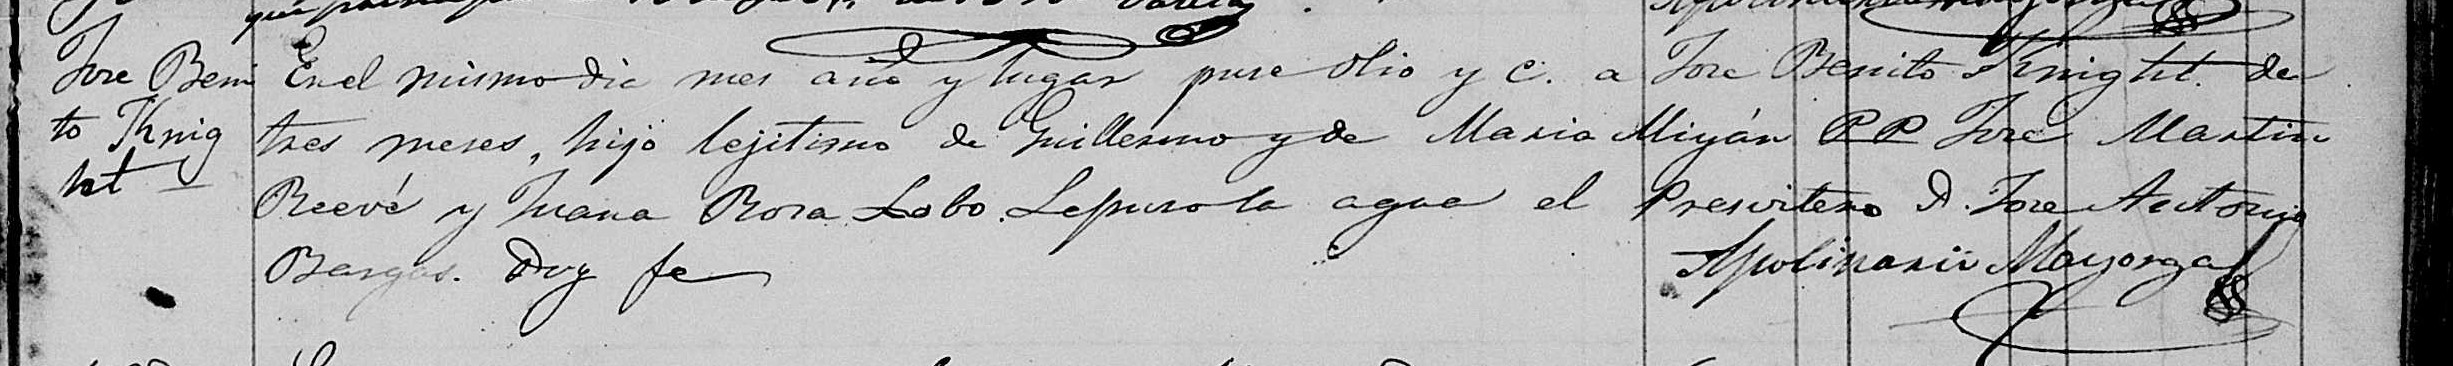 Jose Beni
to Knig
ht
En el mismo dia mes año y lugar puse olio y c. a Jose Benito Knight de
tres meses, hijo lejitimo de Guillermo y de Maria Miyán PP Jose Martin
Reevé y Juana Rosa Lobo. Le puso la agua el Presvitero D. Jose Antonio
Bargas. Doy fe
Apolinario Mayorga